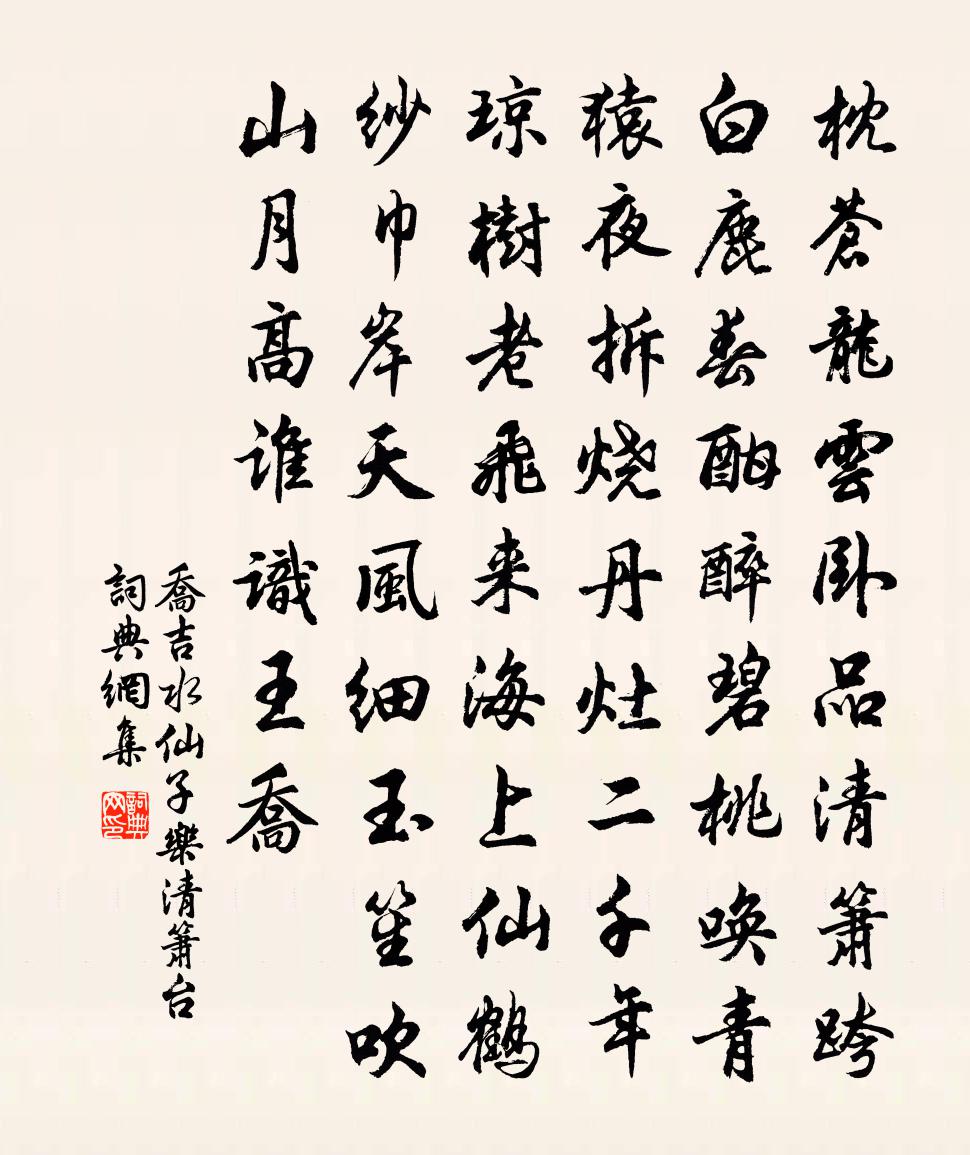 枕蒼龍雲卧品清簫跨
白鹿春酣醉碧桃唤青
猿夜拆烧丹灶二千年
琼樹老飛来海上仙鶴
紗巾岸天風细玉笙吹
山月高誰識王喬
喬吉水仙子樂清簫台
詞典網集
詞典网印